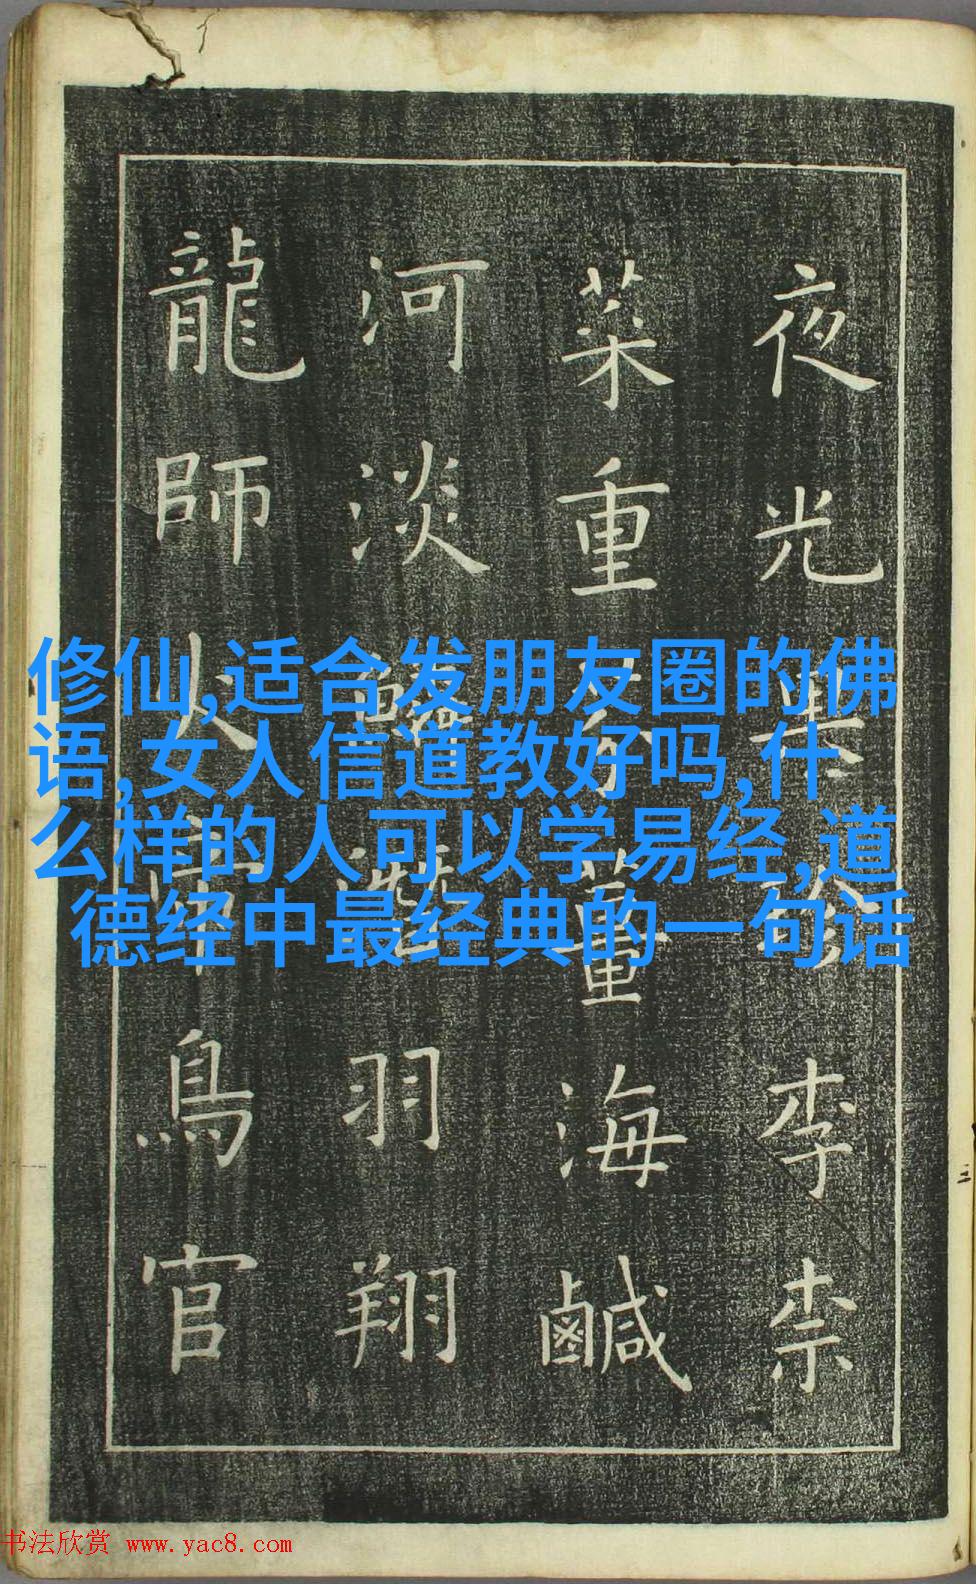 夜光果李柰
菜重薑海鹹
河淡羽翔
龍師火鳥官
修仙,适合发朋友圈的佛
语,女人信道教好吗,什
么样的人可以学易经,道
德经中最经典的一句话
书法欣赏 www.yac8.com